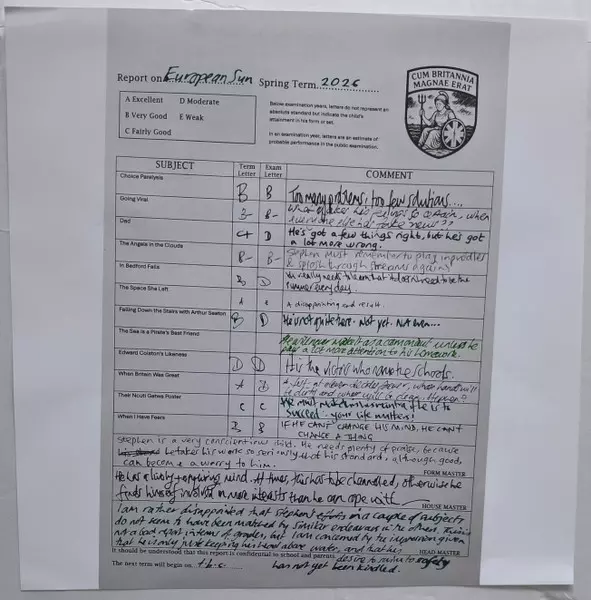 Report on European Sun Spring Term 2026
CUM BRITANNIA
MAGNAE ERAT
A Excellent D Moderate
B Very Good E Weak
C Fairly Good
Below examination years, letters do not represent an
absolute standard but indicate the child's
attainment in his form or set.
In an examination year, letters are an estimate of
probable performance in the public examination.
SUBJECT Term Letter Exam Letter COMMENT
Choice Paralysis B B Too many problems, too few solutions....
Going Viral B- B- What makes his so certain, when
everyone else has fake news??
Dad C+ D He's got a few things right, but he's got
a lot more wrong.
The Angels in the Clouds B- B- Stephen must remember to play in puddles
& splash through streams again
In Bedford Falls B D He really needs to learn that it doesn't need to be the
every day.
The Space She Left A A disappointing end result.
Falling Down the Stairs with Arthur Seaton B D He's not quite there. Not yet. Not even...
The Sea is a Pirate's Best Friend
He will never make it as a unless he
pays a lot more attention to his homework.
Edward Colston's Likeness D D It is the victors who name the schools.
When Britain Was Great A B
Their Nicuti Gatwa Poster C C He must if he is to
succeed. your life matters!
When I Have Fears B B IF HE CAN'T CHANGE HIS MIND, HE CAN'T
CHANGE A THING
Stephen is a very conscientious child. He needs plenty of praise, because
he takes his work so seriously that his standard, although good,
can become a worry to him. FORM MASTER
He has a lively & enquiring mind. At times, this has to be channelled, otherwise he
finds himself involved in more interests than he can cope with HOUSE MASTER
I am rather disappointed that Stephen's efforts in a couple of subjects
do not seem to have been matched by similar endeavours in the others. This is
not a bad report in terms of grades, but I am concerned by the impression given
that he is only just keeping his head above water, and that his HEAD MASTER
It should be understood that this report is confidential to school and parents. desire to return to safety
The next term will begin on t.b.c. has not yet been kindled.